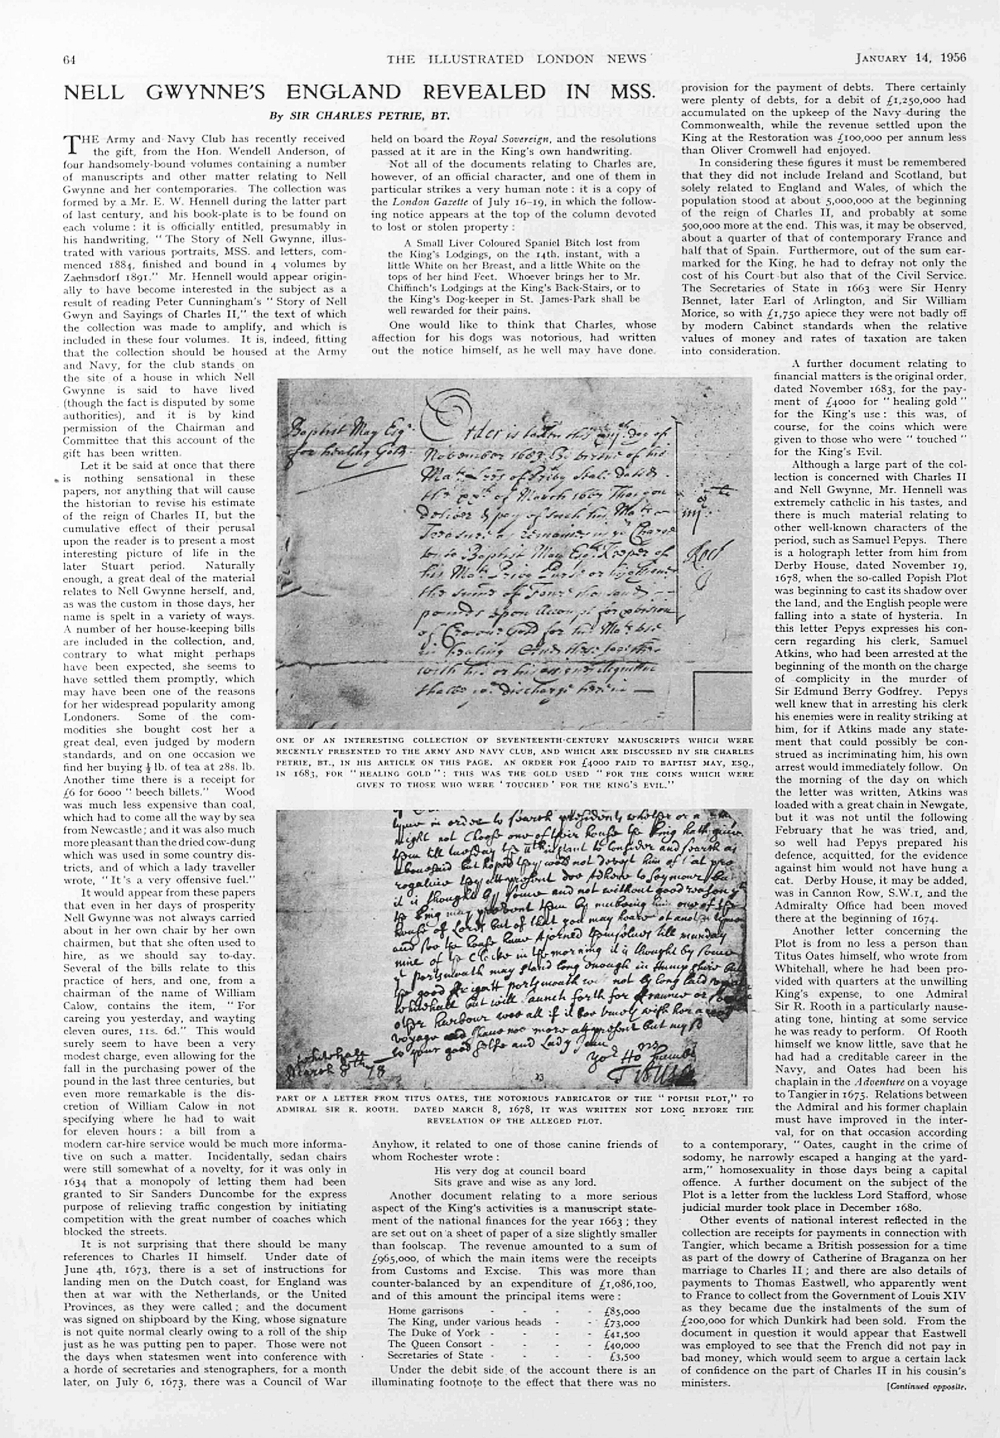 64
THE ILLUSTRATED LONDON NEWS
JANUARY 14, 1956
NELL GWYNNE'S ENGLAND REVEALED IN MSS.
By SIR CHARLES PETRIE, BT.
THE Army and Navy Club has recently received
the gift, from the Hon. Wendell Anderson, of
four handsomely-bound volumes containing a number
of manuscripts and other matter relating to Nell
Gwynne and her contemporaries. The collection was
formed by a Mr. E. W. Hennell during the latter part
of last century, and his book-plate is to be found on
each volume: it is officially entitled, presumably in
his handwriting, "The Story of Nell Gwynne, illus-
trated with various portraits, MSS. and letters, com-
menced 1884, finished and bound in 4 volumes by
Zaehnsdorf 1891." Mr. Hennell would appear origin-
ally to have become interested in the subject as a
result of reading Peter Cunningham's "Story of Nell
Gwyn and Sayings of Charles II," the text of which
the collection was made to amplify, and which is
included in these four volumes. It is, indeed, fitting
that the collection should be housed at the Army
and Navy, for the club stands on
the site of a house in which Nell
Gwynne is said to have lived
(though the fact is disputed by some
authorities), and it is by kind
permission of the Chairman and
Committee that this account of the
gift has been written.
Let it be said at once that there
is nothing sensational in these
papers, nor anything that will cause
the historian to revise his estimate
of the reign of Charles II, but the
cumulative effect of their perusal
upon the reader is to present a most
interesting picture of life in the
later Stuart period. Naturally
enough, a great deal of the material
relates to Nell Gwynne herself, and,
as was the custom in those days, her
name is spelt in a variety of ways.
A number of her house-keeping bills
are included in the collection, and,
contrary to what might perhaps
have been expected, she seems to
have settled them promptly, which
may have been one of the reasons
for her widespread popularity among
Londoners. Some of the com-
modities she bought cost her a
great deal, even judged by modern
standards, and on one occasion we
find her buying ½ lb. of tea at 28s. lb.
Another time there is a receipt for
£6 for 6000 "beech billets." Wood
was much less expensive than coal,
which had to come all the way by sea
from Newcastle; and it was also much
more pleasant than the dried cow-dung
which was used in some country dis-
tricts, and of which a lady traveller
wrote, "It's a very offensive fuel."
It would appear from these papers
that even in her days of prosperity
Nell Gwynne was not always carried
about in her own chair by her own
chairmen, but that she often used to
hire, as we should say to-day.
Several of the bills relate to this
practice of hers, and one, from a
chairman of the name of William
Calow, contains the item, "For
careing you yesterday, and wayting
eleven oures, 11s. 6d." This would
surely seem to have been a very
modest charge, even allowing for the
fall in the purchasing power of the
pound in the last three centuries, but
even more remarkable is the dis-
cretion of William Calow in not
specifying where he had to wait
for eleven hours: a bill from a
modern car-hire service would be much more informa-
tive on such a matter. Incidentally, sedan chairs
were still somewhat of a novelty, for it was only in
1634 that a monopoly of letting them had been
granted to Sir Sanders Duncombe for the express
purpose of relieving traffic congestion by initiating
competition with the great number of coaches which
blocked the streets.
It is not surprising that there should be many
references to Charles II himself. Under date of
June 4th, 1673, there is a set of instructions for
landing men on the Dutch coast, for England was
then at war with the Netherlands, or the United
Provinces, as they were called; and the document
was signed on shipboard by the King, whose signature
is not quite normal clearly owing to a roll of the ship
just as he was putting pen to paper. Those were not
the days when statesmen went into conference with
a horde of secretaries and stenographers, for a month
later, on July 6, 1673, there was a Council of War
held on board the Royal Sovereign, and the resolutions
passed at it are in the King's own handwriting.
Not all of the documents relating to Charles are,
however, of an official character, and one of them in
particular strikes a very human note: it is a copy of
the London Gazette of July 16-19, in which the follow-
ing notice appears at the top of the column devoted
to lost or stolen property:
A Small Liver Coloured Spaniel Bitch lost from
the King's Lodgings, on the 14th. instant, with a
little White on her Breast, and a little White on the
tops of her hind Feet. Whoever brings her to Mr.
Chiffinch's Lodgings at the King's Back-Stairs, or to
the King's Dog-keeper in St. James-Park shall be
well rewarded for their pains.
One would like to think that Charles, whose
affection for his dogs was notorious, had written
out the notice himself, as he well may have done.
Baptist May Esqr
for healing Gold
Order is taken this
November 1683 By virtue of his
ONE OF AN INTERESTING COLLECTION OF SEVENTEENTH-CENTURY MANUSCRIPTS WHICH WERE
RECENTLY PRESENTED TO THE ARMY AND NAVY CLUB, AND WHICH ARE DISCUSSED BY SIR CHARLES
PETRIE, BT., IN HIS ARTICLE ON THIS PAGE. AN ORDER FOR £4000 PAID TO BAPTIST MAY, ESQ.,
IN 1683, FOR "HEALING GOLD": THIS WAS THE GOLD USED "FOR THE COINS WHICH WERE
GIVEN TO THOSE WHO WERE 'TOUCHED' FOR THE KING'S EVIL."
PART OF A LETTER FROM TITUS OATES, THE NOTORIOUS FABRICATOR OF THE "POPISH PLOT," TO
ADMIRAL SIR R. ROOTH. DATED MARCH 8, 1678, IT WAS WRITTEN NOT LONG BEFORE THE
REVELATION OF THE ALLEGED PLOT.
Anyhow, it related to one of those canine friends of
whom Rochester wrote:
His very dog at council board
Sits grave and wise as any lord.
Another document relating to a more serious
aspect of the King's activities is a manuscript state-
ment of the national finances for the year 1663; they
are set out on a sheet of paper of a size slightly smaller
than foolscap. The revenue amounted to a sum of
£965,000, of which the main items were the receipts
from Customs and Excise. This was more than
counter-balanced by an expenditure of £1,086,100,
and of this amount the principal items were:
Home garrisons - - - - £85,000
The King, under various heads - - £73,000
The Duke of York - - - - £41,500
The Queen Consort - - - - £40,000
Secretaries of State - - - - £3,500
Under the debit side of the account there is an
illuminating footnote to the effect that there was no
provision for the payment of debts. There certainly
were plenty of debts, for a debit of £1,250,000 had
accumulated on the upkeep of the Navy during the
Commonwealth, while the revenue settled upon the
King at the Restoration was £100,000 per annum less
than Oliver Cromwell had enjoyed.
In considering these figures it must be remembered
that they did not include Ireland and Scotland, but
solely related to England and Wales, of which the
population stood at about 5,000,000 at the beginning
of the reign of Charles II, and probably at some
500,000 more at the end. This was, it may be observed,
about a quarter of that of contemporary France and
half that of Spain. Furthermore, out of the sum ear-
marked for the King, he had to defray not only the
cost of his Court but also that of the Civil Service.
The Secretaries of State in 1663 were Sir Henry
Bennet, later Earl of Arlington, and Sir William
Morice, so with £1,750 apiece they were not badly off
by modern Cabinet standards when the relative
values of money and rates of taxation are taken
into consideration.
A further document relating to
financial matters is the original order,
dated November 1683, for the pay-
ment of £4000 for "healing gold"
for the King's use: this was, of
course, for the coins which were
given to those who were "touched"
for the King's Evil.
Although a large part of the col-
lection is concerned with Charles II
and Nell Gwynne, Mr. Hennell was
extremely catholic in his tastes, and
there is much material relating to
other well-known characters of the
period, such as Samuel Pepys. There
is a holograph letter from him from
Derby House, dated November 19,
1678, when the so-called Popish Plot
was beginning to cast its shadow over
the land, and the English people were
falling into a state of hysteria. In
this letter Pepys expresses his con-
cern regarding his clerk, Samuel
Atkins, who had been arrested at the
beginning of the month on the charge
of complicity in the murder of
Sir Edmund Berry Godfrey. Pepys
well knew that in arresting his clerk
his enemies were in reality striking at
him, for if Atkins made any state-
ment that could possibly be con-
strued as incriminating him, his own
arrest would immediately follow. On
the morning of the day on which
the letter was written, Atkins was
loaded with a great chain in Newgate,
but it was not until the following
February that he was tried, and,
so well had Pepys prepared his
defence, acquitted, for the evidence
against him would not have hung a
cat. Derby House, it may be added,
was in Cannon Row, S.W.1, and the
Admiralty Office had been moved
there at the beginning of 1674.
Another letter concerning the
Plot is from no less a person than
Titus Oates himself, who wrote from
Whitehall, where he had been pro-
vided with quarters at the unwilling
King's expense, to one Admiral
Sir R. Rooth in a particularly nause-
ating tone, hinting at some service
he was ready to perform. Of Rooth
himself we know little, save that he
had had a creditable career in the
Navy, and Oates had been his
chaplain in the Adventure on a voyage
to Tangier in 1675. Relations between
the Admiral and his former chaplain
must have improved in the inter-
val, for on that occasion according
to a contemporary, "Oates, caught in the crime of
sodomy, he narrowly escaped a hanging at the yard-
arm," homosexuality in those days being a capital
offence. A further document on the subject of the
Plot is a letter from the luckless Lord Stafford, whose
judicial murder took place in December 1680.
Other events of national interest reflected in the
collection are receipts for payments in connection with
Tangier, which became a British possession for a time
as part of the dowry of Catherine of Braganza on her
marriage to Charles II; and there are also details of
payments to Thomas Eastwell, who apparently went
to France to collect from the Government of Louis XIV
as they became due the instalments of the sum of
£200,000 for which Dunkirk had been sold. From the
document in question it would appear that Eastwell
was employed to see that the French did not pay in
bad money, which would seem to argue a certain lack
of confidence on the part of Charles II in his cousin's
ministers.
[Continued opposite.